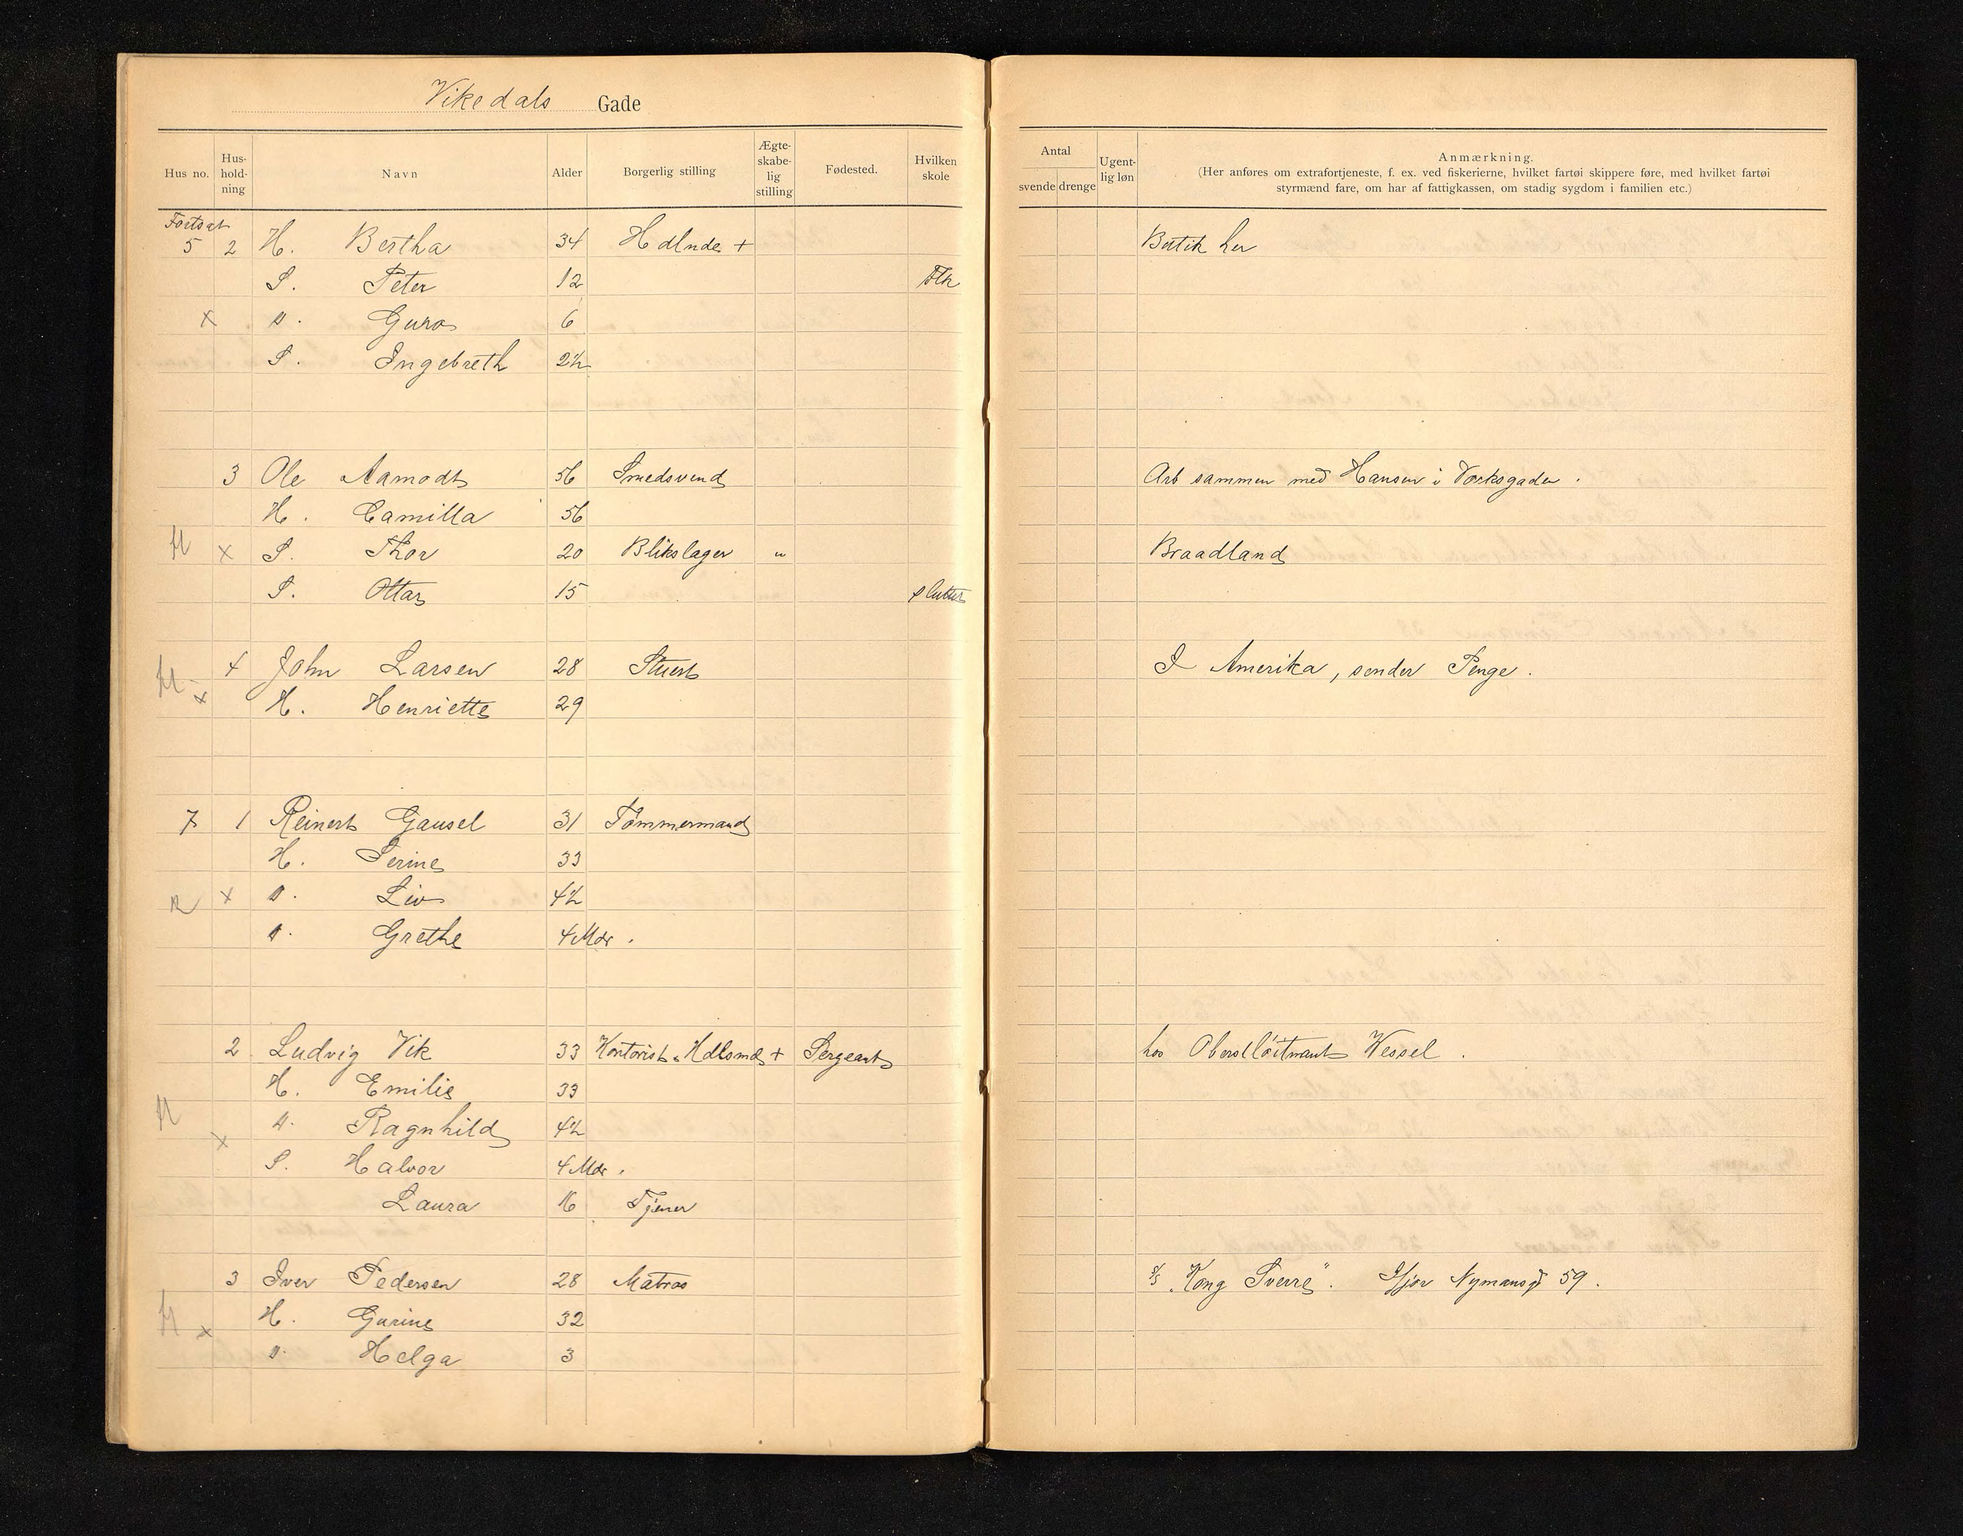 Vikedals Gade
Hus no. Hus-hold-ning Navn Alder Borgerlig stilling Ægte-skabe-lig stilling Fødested. Hvilken skole Antal svende drenge Ugent-lig løn Anmærkning.
(Her anføres om extrafortjeneste, f. ex. ved fiskerierne, hvilket fartøi skippere føre, med hvilket fartøi
styrmænd fare, om har af fattigkassen, om stadig sygdom i familien etc.)
Fortsat
5 2 H. Bertha 34 Hdlnde + Butik her
S. Peter 12 Flk
x D. Guro 6
S. Ingebreth 2½
3 Ole Aamodt 56 Smedsvend Arb sammen med Hansen i Værksgaden.
H. Camilla 56
x S. Thor 20 Blikslager " Braadland
S. Ottar 15 sluttet
4 John Larsen 28 Stuert I Amerika, sender Penge.
x H. Henriette 29
7 1 Reinert Gausel 31 Tømmermand
H. Serine 33
x D. Liv 4½
D. Grethe 4 Mdr.
2 Ludvig Vik 33 Kontorist & Hdlsmd + Sergeant hos Oberstløitnant Wessel.
H. Emilie 33
D. Ragnhild 4½
x
S. Halvor 4 Mdr.
Laura 16 Tjener
3 Iver Pedersen 28 Matros S/S "Kong Sverre". Ifjor Nymansg 59.
H. Gurine 32
x
D. Helga 3